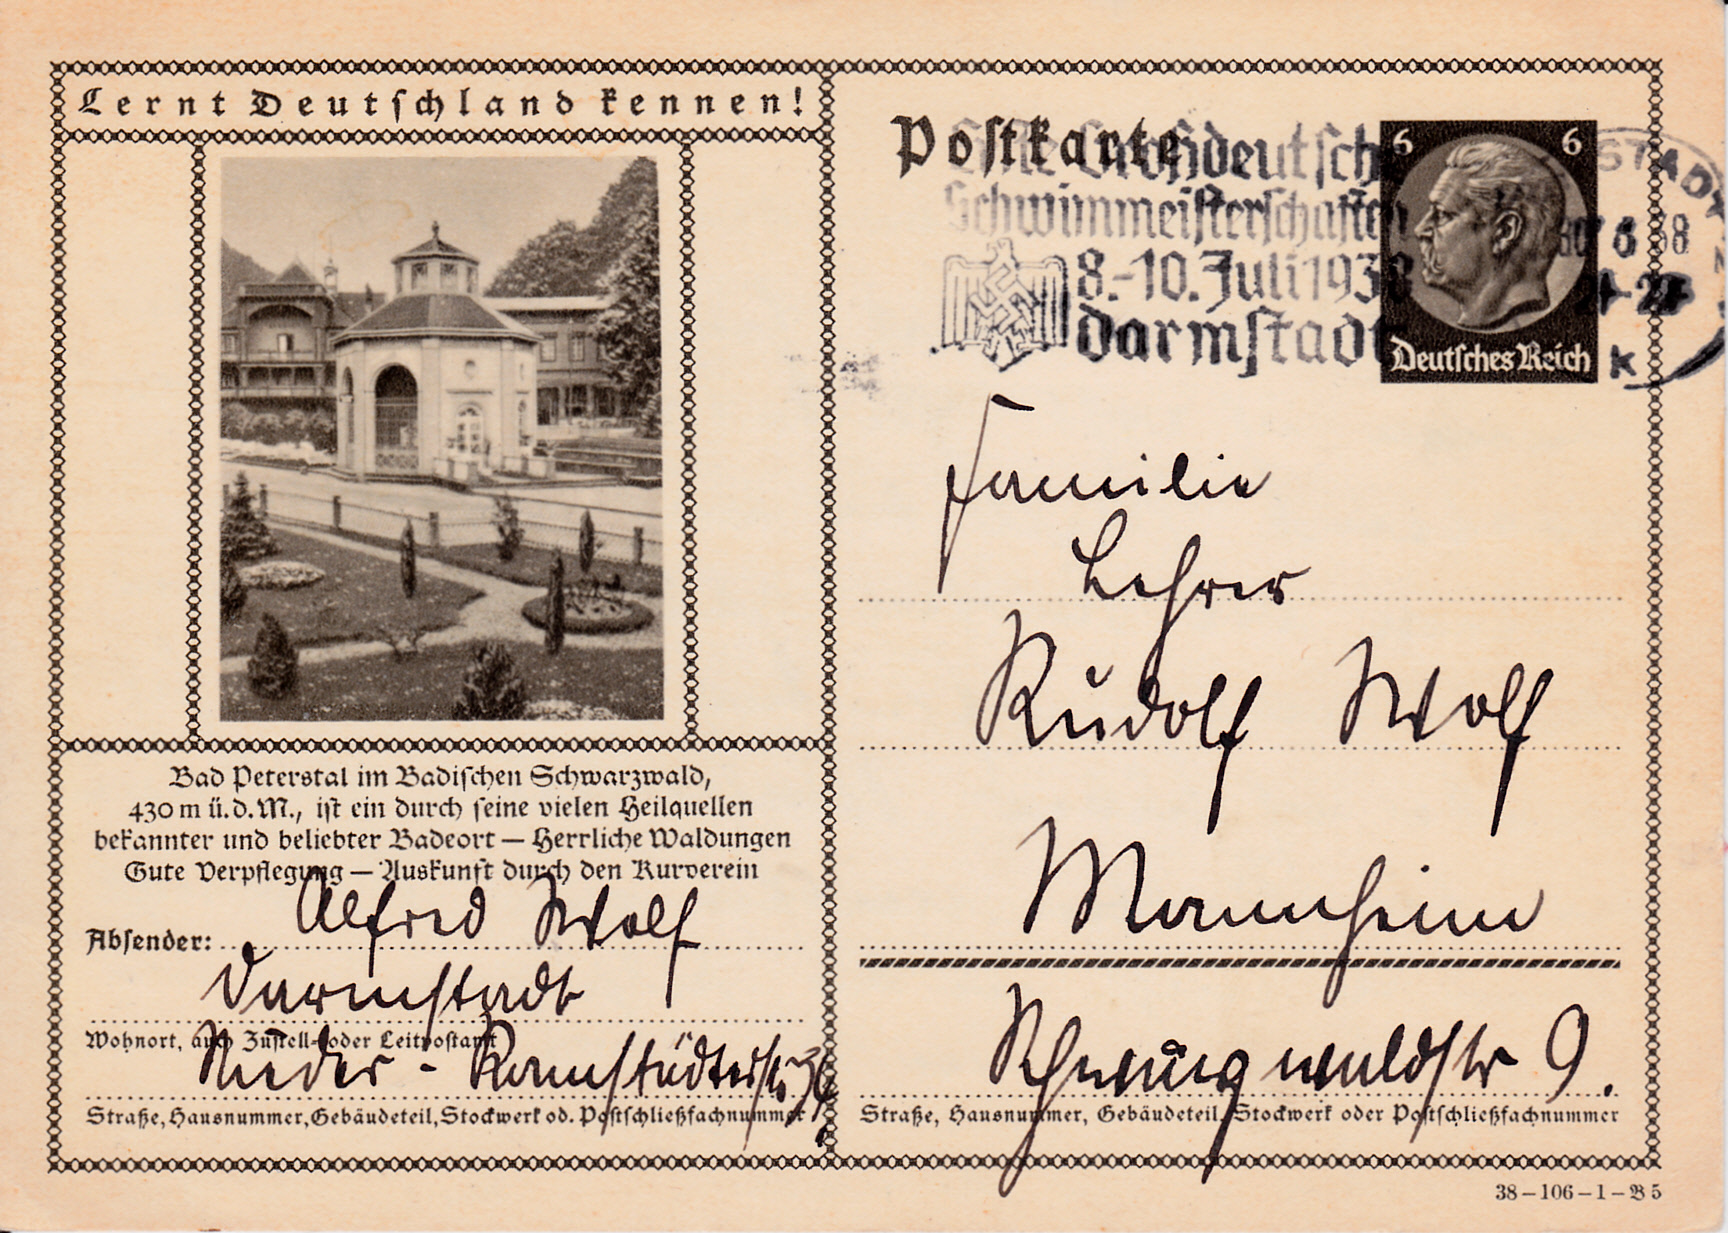 Lernt Deutschland kennen!
Bad Peterstal im Badischen Schwarzwald,
430 m ü. d. M., ist ein durch seine vielen Heilquellen
bekannter und beliebter Badeort — Herrliche Waldungen
Gute Verpflegung — Auskunft durch den Kurverein
Absender: Alfred Wolf
Darmstadt
Wohnort, auch Zustell- oder Leitpostamt
Nieder-Ramstädterstr
Straße, Hausnummer, Gebäudeteil, Stockwerk od. Postschließfachnummer
Postkarte
Erste Großdeutsche
Schwimmeisterschaften
8.-10. Juli 1938
Darmstadt
6 6
Deutsches Reich
k
Familie
Lehrer
Rudolf Wolf
Mannheim
9.
Straße, Hausnummer, Gebäudeteil, Stockwerk oder Postschließfachnummer
38 – 106 – 1 – B 5